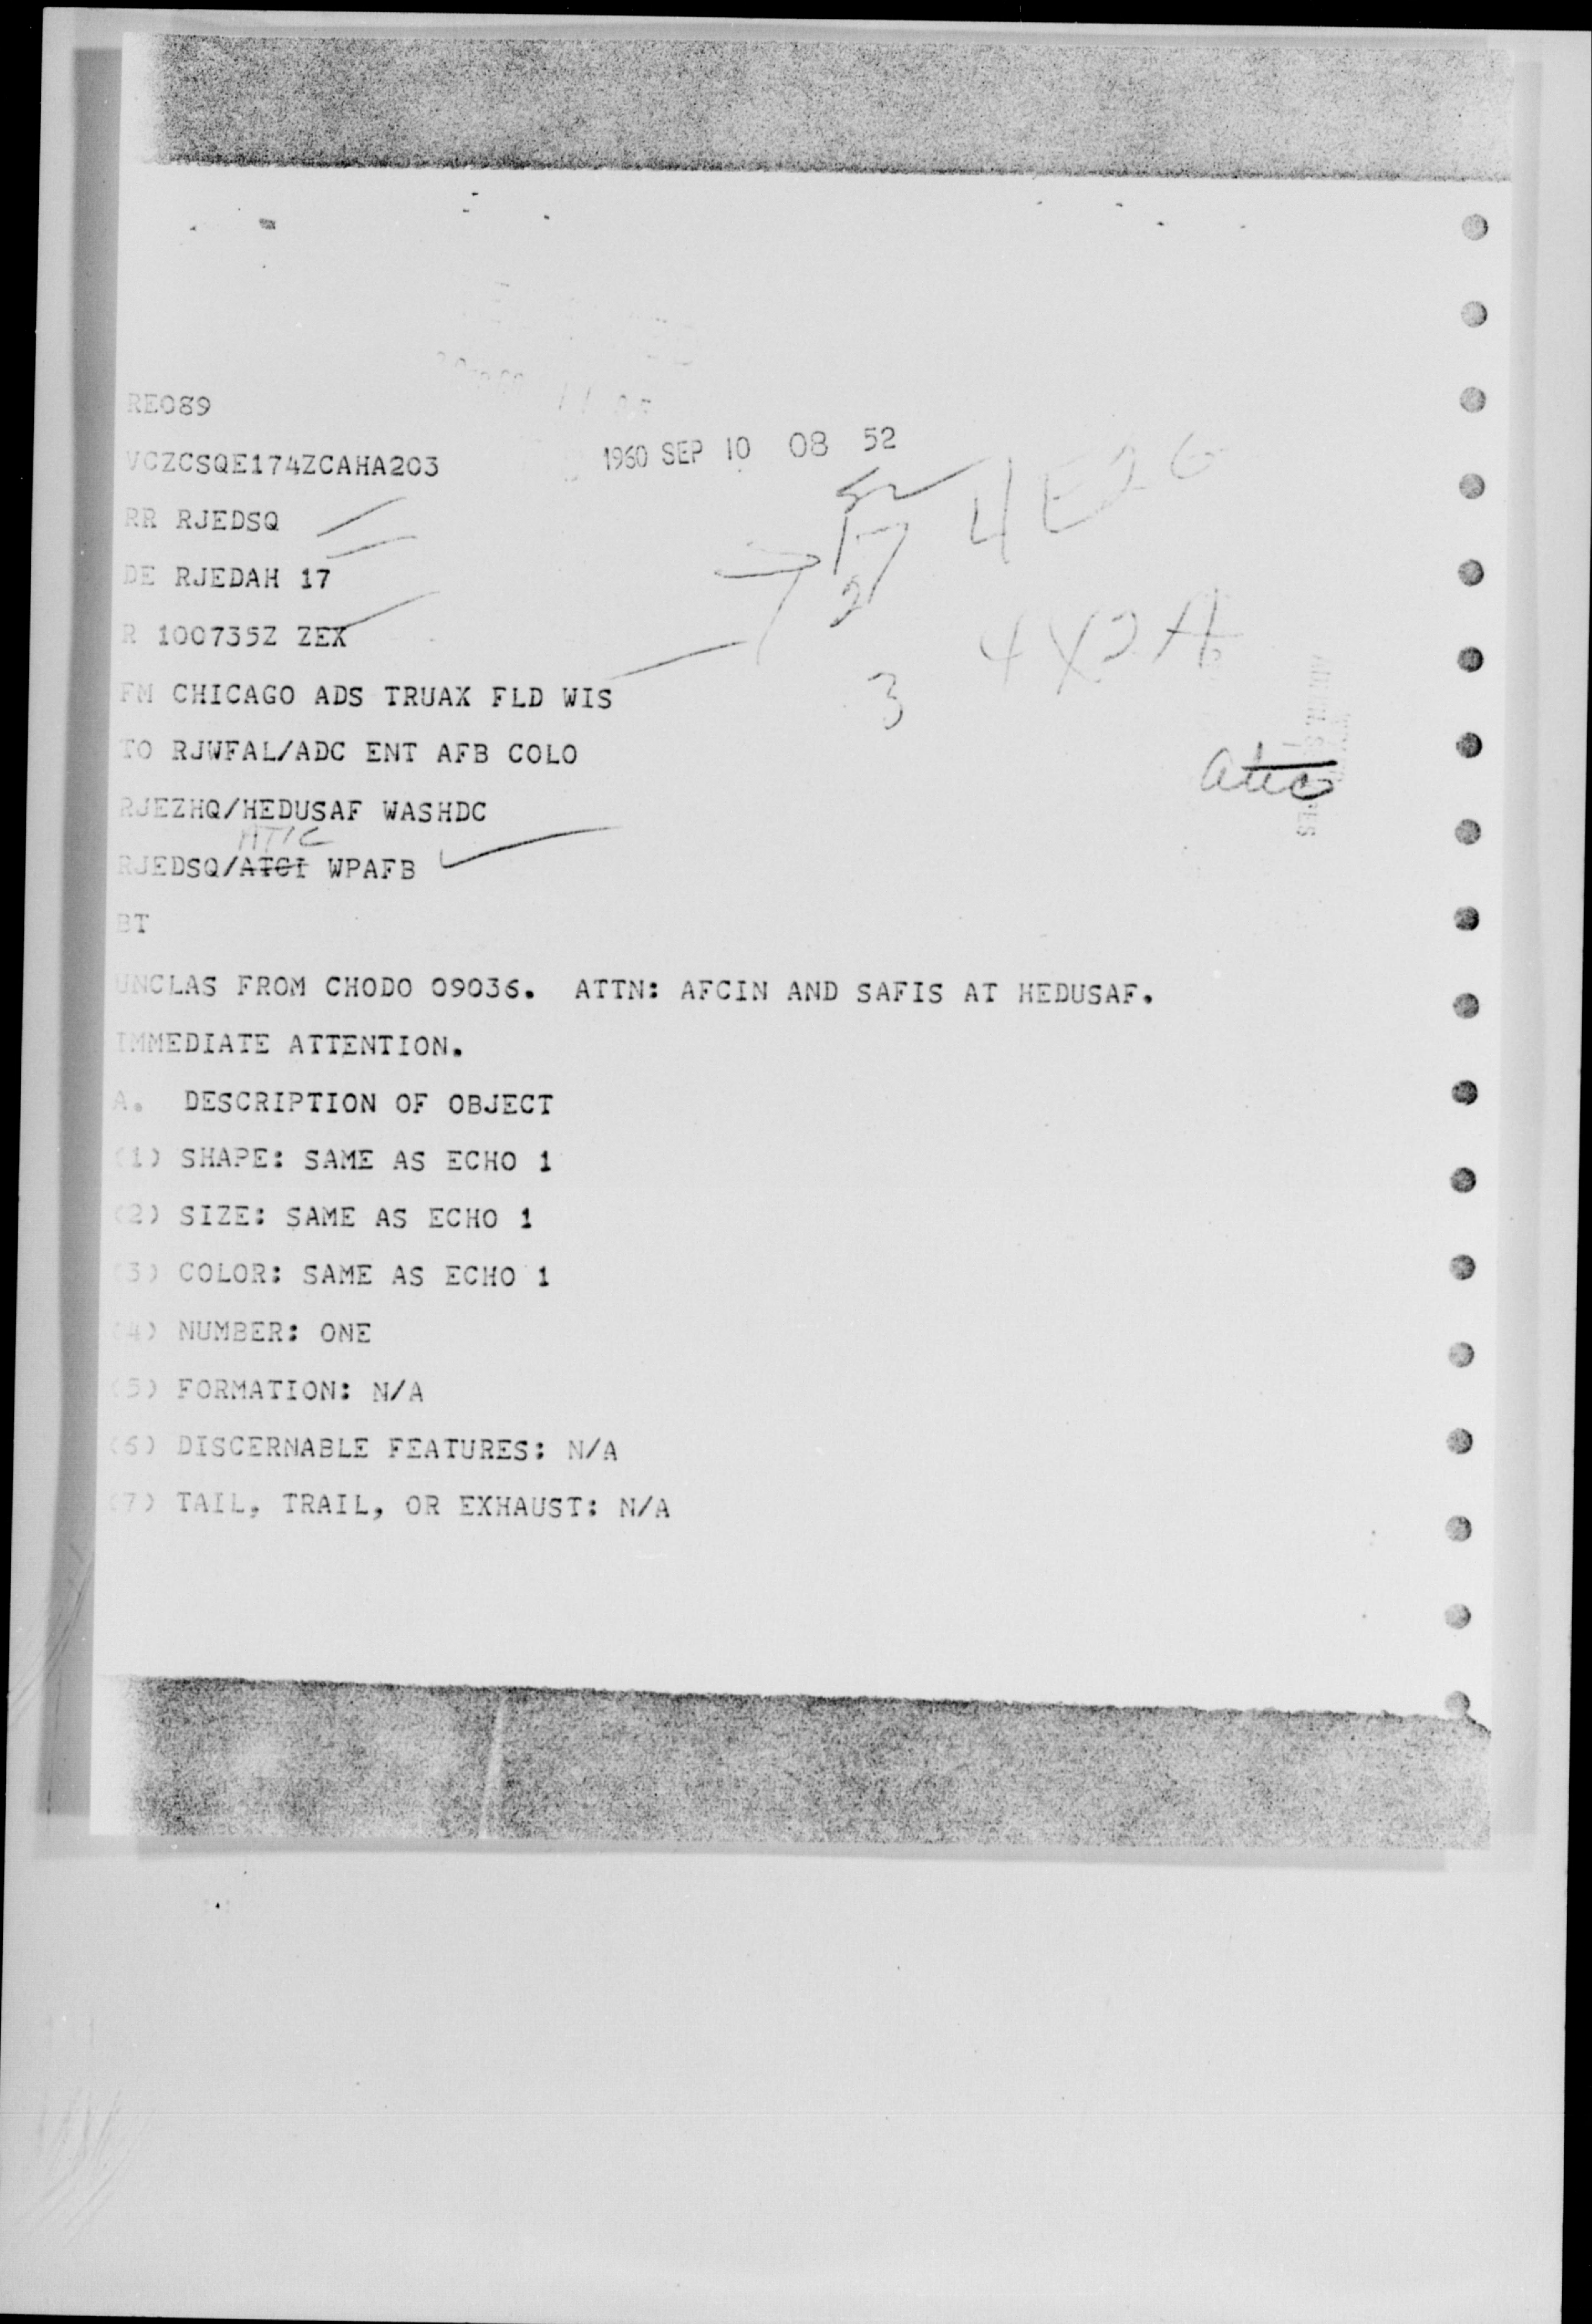 RE089
1960 SEP 10 08 52
VCZCSQE174ZCAHA203
RR RJEDSQ
4E26
DE RJEDAH 17
2
R 100735Z ZEX
4X2A
FM CHICAGO ADS TRUAX FLD WIS
3
TO RJWFAL/ADC ENT AFB COLO
atic
RJEZHQ/HEDUSAF WASHDC
ATIC
RJEDSQ/ATCI WPAFB
BT
UNCLAS FROM CHODO 09036. ATTN: AFCIN AND SAFIS AT HEDUSAF.
IMMEDIATE ATTENTION.
A. DESCRIPTION OF OBJECT
(1) SHAPE: SAME AS ECHO 1
(2) SIZE: SAME AS ECHO 1
(3) COLOR: SAME AS ECHO 1
(4) NUMBER: ONE
(5) FORMATION: N/A
(6) DISCERNABLE FEATURES: N/A
(7) TAIL, TRAIL, OR EXHAUST: N/A